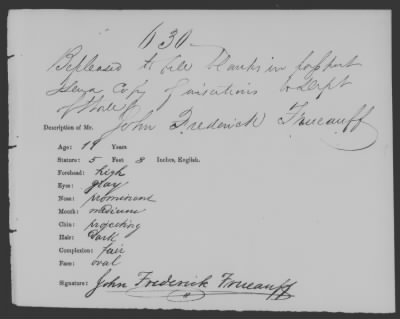 630
Be pleased to fill blanks in passport
Send copy of instructions to Dept
of State
Description of Mr. John Frederick Frueauff
Age: 19 Years
Stature: 5 Feet 8 Inches, English.
Forehead: high
Eyes: gray
Nose: prominent
Mouth: medium
Chin: projecting
Hair: Dark
Complexion: fair
Face: oval
Signature: John Frederick Frueauff